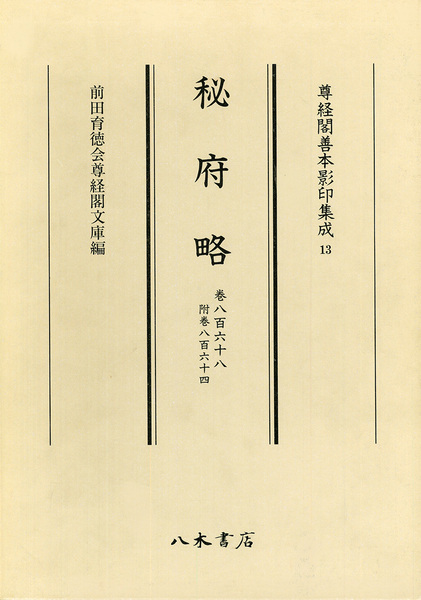 尊経閣善本影印集成 13
秘府略
巻八百六十八
附巻八百六十四
前田育徳会尊経閣文庫編
八木書店